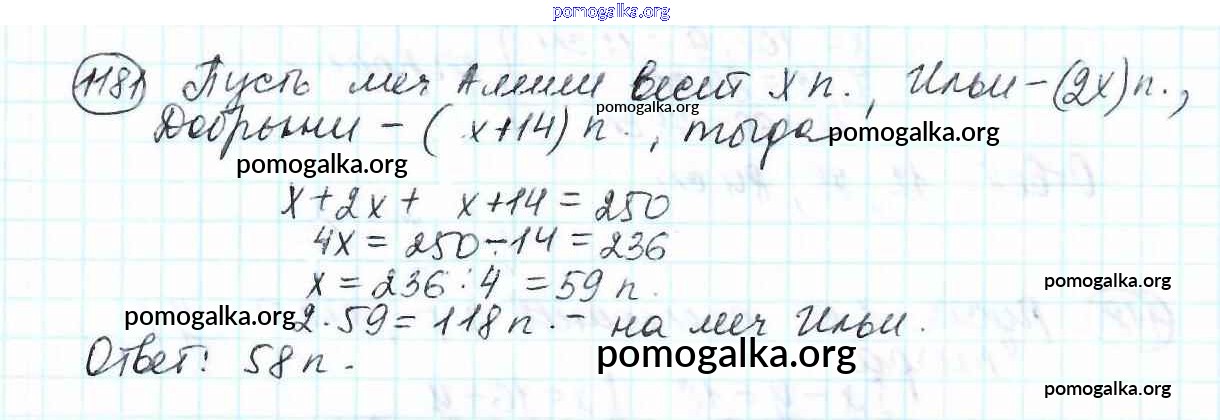 pomogalka.org
1181 Пусть меч Алеши весит x п., Ильи – (2x) п.,
pomogalka.org
Добрыни – ( x+14) п., тогда
pomogalka.org
pomogalka.org
x+2x+ x+14=250
4x = 250-14 = 236
x = 236 : 4 = 59 п.
pomogalka.org
pomogalka.org
2·59=118 п. – на меч Ильи.
Ответ: 58 п.
pomogalka.org
pomogalka.org